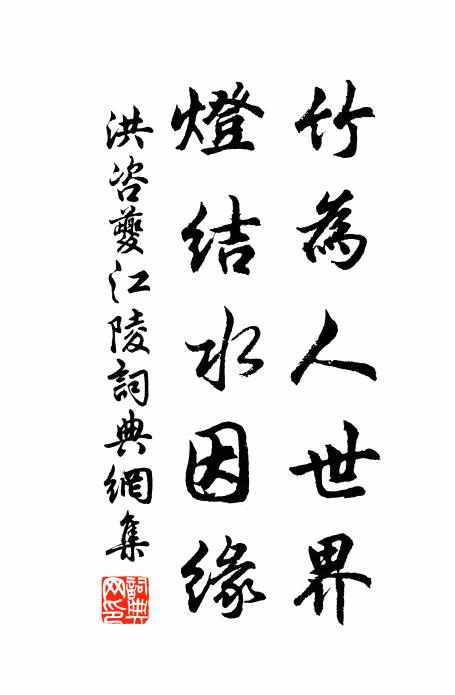 竹為人世界
燈結水因緣
洪咨夔江陵詞典網集
詞典網印